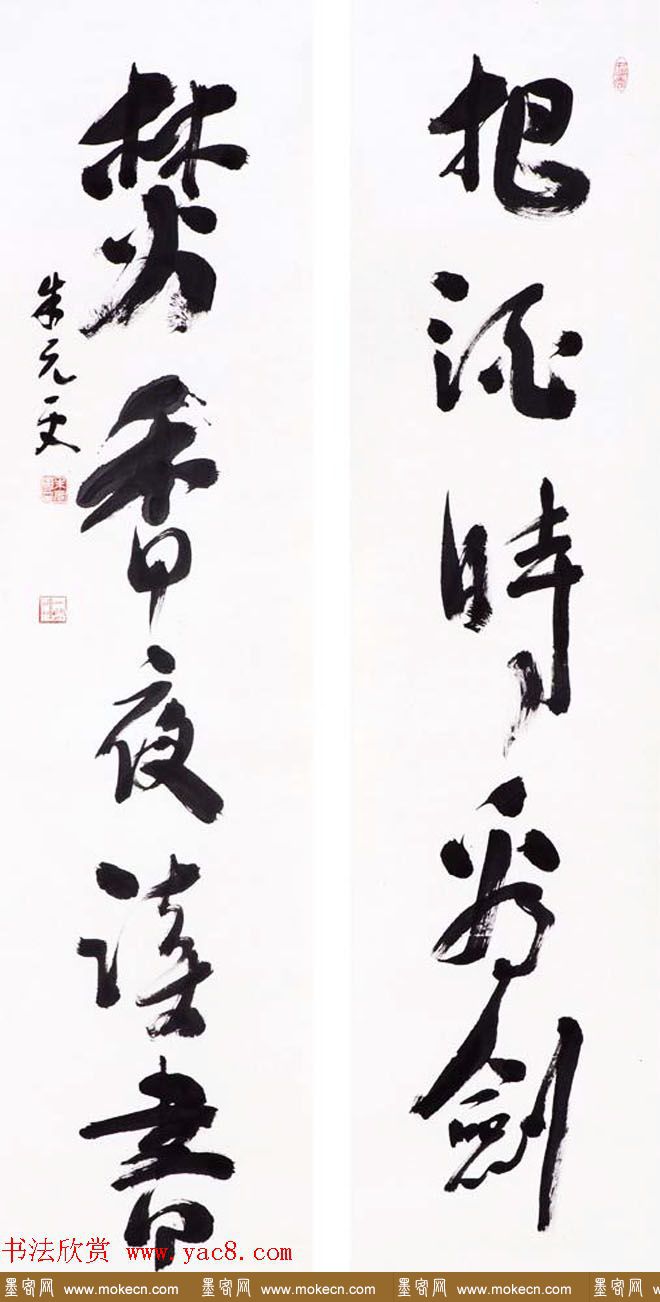 把酒時看劍
焚香夜讀書
朱元更
书法欣赏 www.yac8.com
墨客网 www.mokecn.com 墨客网 www.mokecn.com 墨客网 www.mokecn.com 墨客网 w